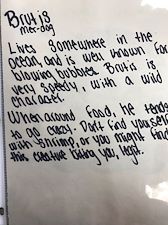 Brutis
mer-dog
Lives somewhere in the
ocean, and is well known for
blowing bubbles. Brutis is
very speedy, with a wild
character.
When around food, he tends
to go crazy. Don't find yourself
with shrimp, or you might find
this creative biting you, legit.